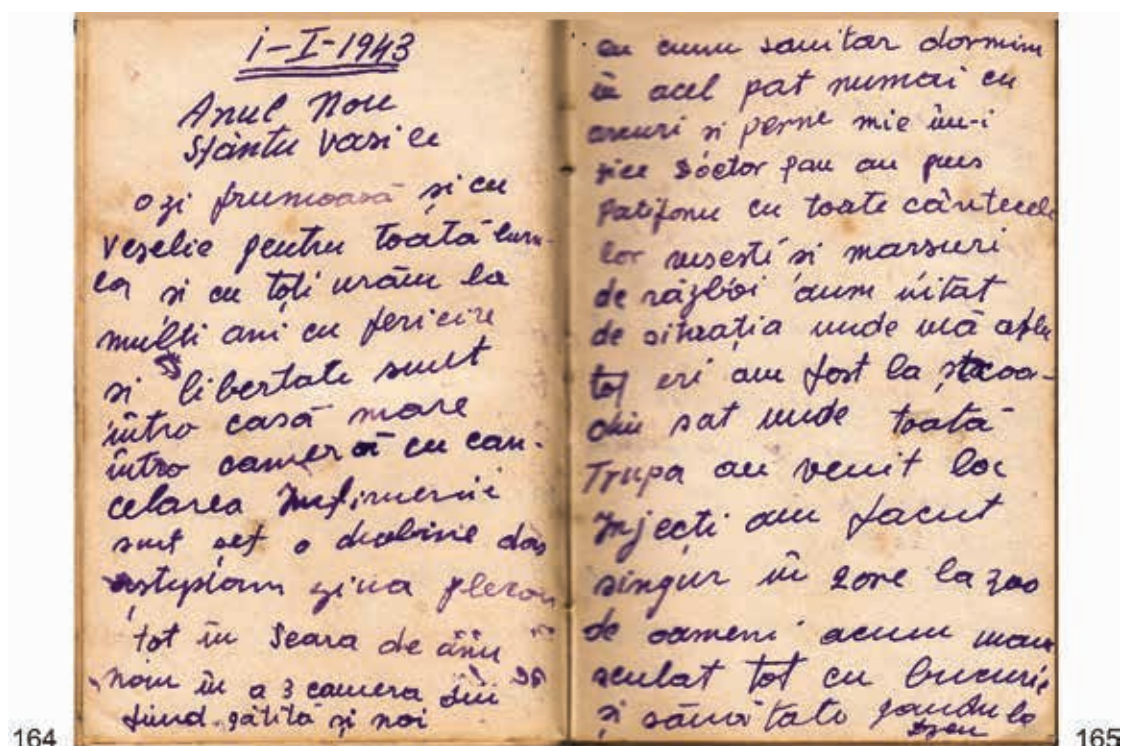 1-I-1943
Anul Nou
Sfântu Vasile
o zi frumoasă și cu
Veselie pentru toată lum-
ea și cu toți urăm la
mulți ani cu fericire
si libertate sunt
intro casă mare
intro cameră cu can-
celarea Infirmerii
sunt șef o
ziua
tot in Seara de
nou in a 3 camera
fiind gătită și noi
cu sanitar dormim
acel pat numai cu
arcuri si perne mie imi
zice Doctor au pus
Patifonu cu toate cântecele
lor rusesti si marsuri
de război aum uitat
de situația unde mă aflu
tot eri am fost la
sat unde toată
Trupa au venit loc
Injecti am facut
singur in 2 ore la 300
de oameni acum
sculat tot cu bucurie
și sănătate gandu la
Dzeu
164
165